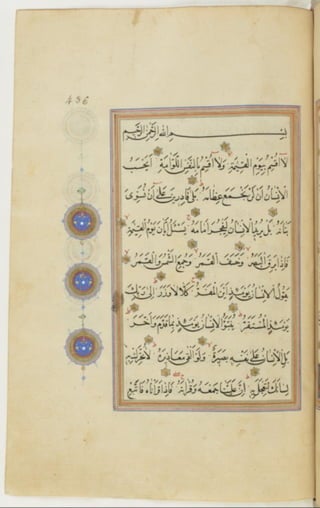 436
بسم الله الرحمن الرحيم
لا اقسم بيوم القيمة ولا اقسم بالنفس اللوامة ايحسب
الانسان ان لن نجمع عظامه بلى قادرين على ان نسوى
بنانه بل يريد الانسان ليفجر امامه يسئل ايان يوم القيمة
فاذا برق البصر وخسف القمر وجمع الشمس والقمر
يقول الانسان يومئذ اين المفر كلا لا وزر الى ربك
يومئذ المستقر ينبؤا الانسان يومئذ بما قدم واخر
بل الانسان على نفسه بصيرة ولو القى معاذيره لا تحرك به
لسانك لتعجل به ان علينا جمعه وقرانه فاذا قراناه فاتبع